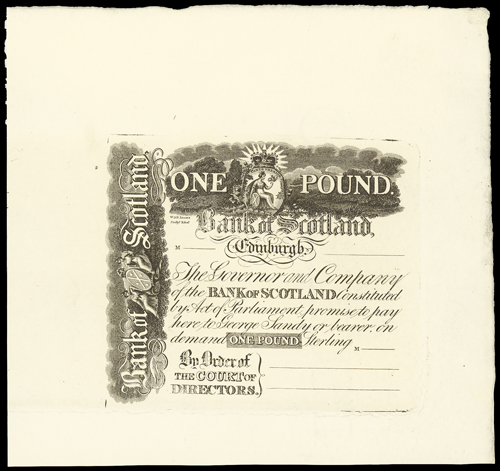 Bank of Scotland,
ONE POUND.
Bank of Scotland,
M
Edinburgh,
The Governor and Company
of the BANK OF SCOTLAND Constituted
by Act of Parliament, promise to pay
here to George Sandy or bearer, on
demand ONE POUND Sterling
M
By Order of
THE COURT OF
DIRECTORS.